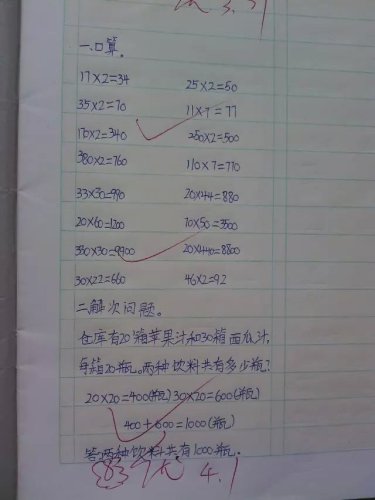 3.31
一.口算。
17×2=34 25×2=50
35×2=70 11×7=77
170×2=340 250×2=500
380×2=760 110×7=770
33×30=990 20×44=880
20×60=1200 70×50=3500
330×30=9900 20×440=8800
30×22=660 46×2=92
二.解次问题。
仓库有20箱苹果汁和30箱西瓜汁,
每箱20瓶。两种饮料共有多少瓶?
20×20=400(瓶) 30×20=600(瓶)
400+600=1000(瓶)
答:两种饮料共有1000瓶.
4.1